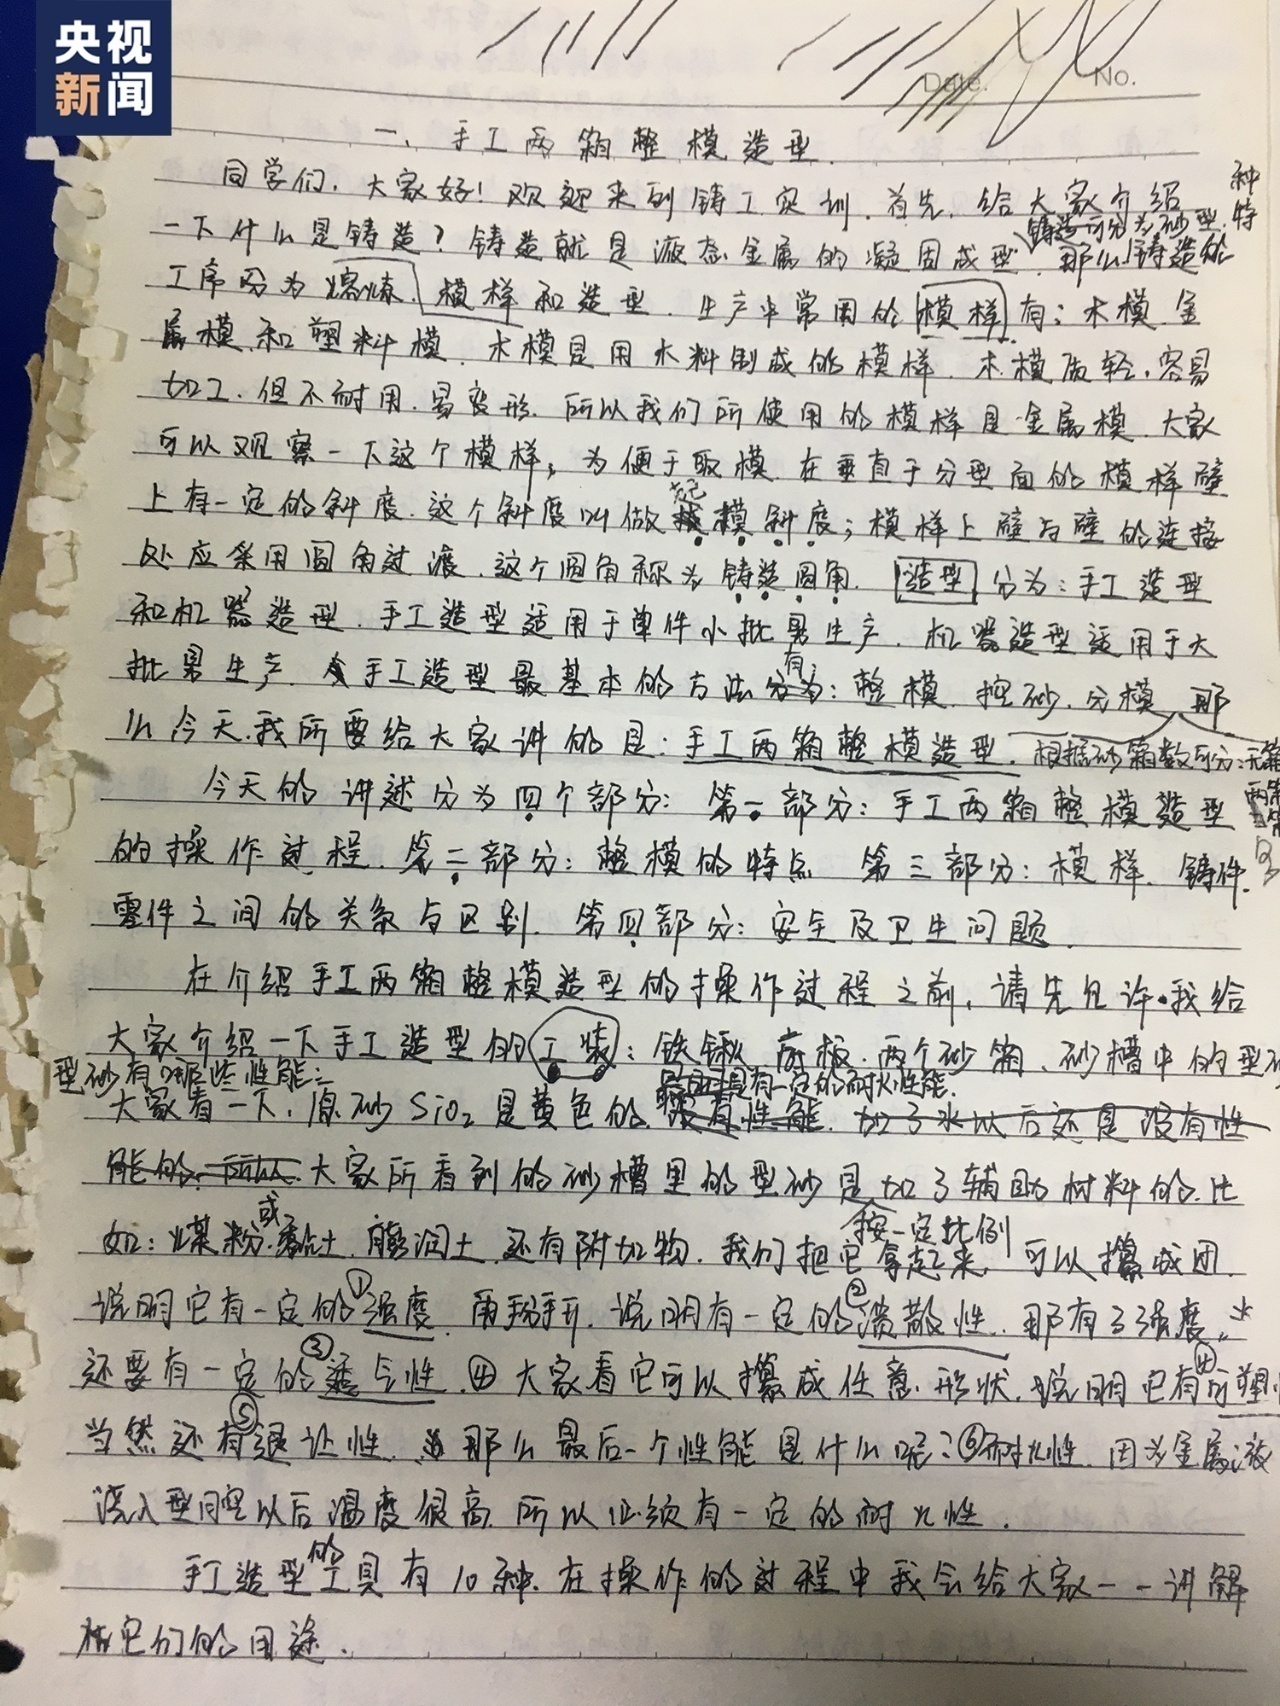 央视
新闻
Date.
No.
一、手工两箱整模造型.
同学们,大家好!欢迎来到铸工实训.首先,给大家介绍
种
特
铸造可分为砂型.
一下什么是铸造?铸造就是液态金属的凝固成型.那么铸造的
工序分为熔炼.模样和造型.生产中常用的模样有:木模.金
属模.和塑料模.木模是用木料制成的模样.木模质轻,容易
加工.但不耐用.易变形.所以我们所使用的模样是金属模.大家
可以观察一下这个模样,为便于取模 在垂直于分型面的模样壁
起
上有一定的斜度.这个斜度叫做模斜度;模样上壁与壁的连接
处应采用圆角过渡.这个圆角称为铸造圆角.造型分为:手工造型
和机器造型.手工造型适用于单件小批量生产.机器造型适用于大
有:
批量生产.手工造型最基本的方法分为:整模.挖砂.分模.那
么今天.我所要给大家讲的是:手工两箱整模造型.根据砂箱数可分:无箱
两箱
今天的讲述分为四个部分:第一部分:手工两箱整模造型
的操作过程.第二部分:整模的特点 第三部分:模样.铸件.
零件之间的关系与区别.第四部分:安全及卫生问题.
在介绍手工两箱整模造型的操作过程之前,请先允许我给
大家介绍一下手工造型的工装:铁锹.底板.两个砂箱.砂槽中的型砂
型砂有哪些性能:
是有一定的耐火性能.
大家看一下,原砂SiO₂是黄色的.没有性能.加了水以后还是没有性
能的.所以大家所看到的砂槽里的型砂是加了辅助材料的.比
或
按一定比例
如:煤粉.黏土.膨润土.还有附加物.我们把它拿起来,可以攥成团.
说明它有一定的①强度.用手掰开.说明有一定的②溃散性.那有了强度.
还要有一定的③透气性.④大家看它可以攥成任意形状.说明它有④可塑性
当然还有⑤退让性.那么最后一个性能是什么呢?⑥耐火性.因为金属液
浇入型腔以后温度很高.所以必须有一定的耐火性.
手工造型的工具有10种.在操作的过程中我会给大家一一讲解
它们的用途.